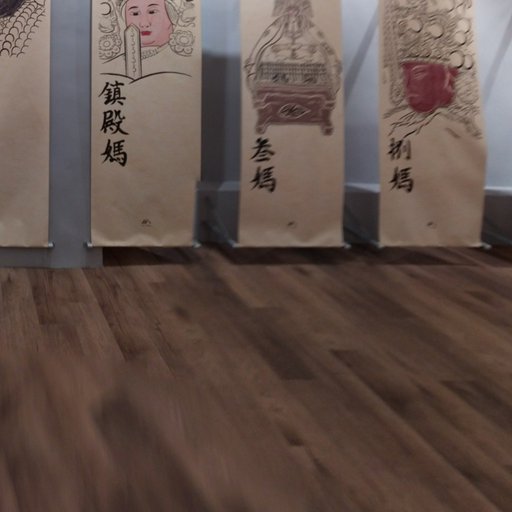 鎮殿媽
叁媽
捌媽